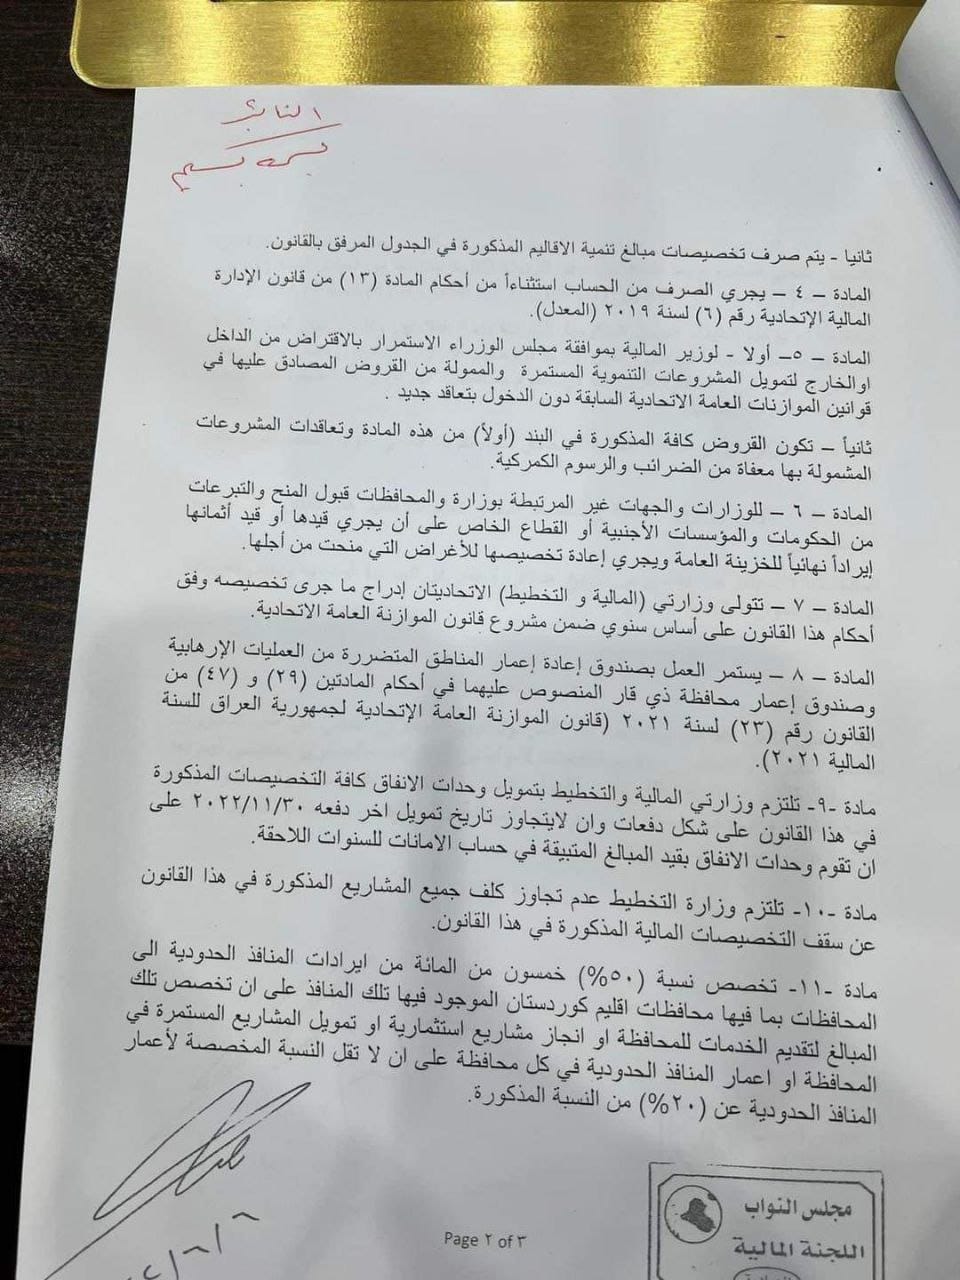 النائب
بسمه بسيم
ثانيا - يتم صرف تخصيصات مبالغ تنمية الاقاليم المذكورة في الجدول المرفق بالقانون.
المادة – ٤ – يجري الصرف من الحساب استثناءاً من أحكام المادة (١٣) من قانون الإدارة
المالية الإتحادية رقم (٦) لسنة ٢٠١٩ (المعدل).
المادة – ٥– أولا - لوزير المالية بموافقة مجلس الوزراء الاستمرار بالاقتراض من الداخل
اوالخارج لتمويل المشروعات التنموية المستمرة والممولة من القروض المصادق عليها في
قوانين الموازنات العامة الاتحادية السابقة دون الدخول بتعاقد جديد .
ثانياً – تكون القروض كافة المذكورة في البند (أولاً) من هذه المادة وتعاقدات المشروعات
المشمولة بها معفاة من الضرائب والرسوم الكمركية.
المادة – ٦ – للوزارات والجهات غير المرتبطة بوزارة والمحافظات قبول المنح والتبرعات
من الحكومات والمؤسسات الأجنبية أو القطاع الخاص على أن يجري قيدها أو قيد أثمانها
إيراداً نهائياً للخزينة العامة ويجري إعادة تخصيصها للأغراض التي منحت من أجلها.
المادة – ٧ – تتولى وزارتي (المالية و التخطيط) الاتحاديتان إدراج ما جرى تخصيصه وفق
أحكام هذا القانون على أساس سنوي ضمن مشروع قانون الموازنة العامة الاتحادية.
المادة – ٨ – يستمر العمل بصندوق إعادة إعمار المناطق المتضررة من العمليات الإرهابية
وصندوق إعمار محافظة ذي قار المنصوص عليهما في أحكام المادتين (٢٩) و (٤٧) من
القانون رقم (٢٣) لسنة ٢٠٢١ (قانون الموازنة العامة الإتحادية لجمهورية العراق للسنة
المالية ٢٠٢١).
مادة -٩- تلتزم وزارتي المالية والتخطيط بتمويل وحدات الانفاق كافة التخصيصات المذكورة
في هذا القانون على شكل دفعات وان لايتجاوز تاريخ تمويل اخر دفعه ٢٠٢٢/١١/٣٠ على
ان تقوم وحدات الانفاق بقيد المبالغ المتبيقة في حساب الامانات للسنوات اللاحقة.
مادة -١٠- تلتزم وزارة التخطيط عدم تجاوز كلف جميع المشاريع المذكورة في هذا القانون
عن سقف التخصيصات المالية المذكورة في هذا القانون.
مادة -١١- تخصص نسبة (٥٠%) خمسون من المائة من ايرادات المنافذ الحدودية الى
المحافظات بما فيها محافظات اقليم كوردستان الموجود فيها تلك المنافذ على ان تخصص تلك
المبالغ لتقديم الخدمات للمحافظة او انجاز مشاريع استثمارية او تمويل المشاريع المستمرة في
المحافظة او اعمار المنافذ الحدودية في كل محافظة على ان لا تقل النسبة المخصصة لأعمار
المنافذ الحدودية عن (٢٠%) من النسبة المذكورة.
مجلس النواب
اللجنة المالية
Page ٢ of ٣